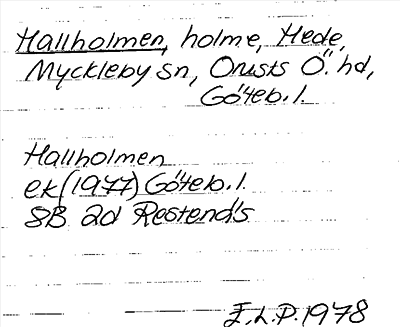 Hallholmen, holme, Hede,
Myckleby sn, Orusts Ö. hd,
Göteb. l.
Hallholmen
ek (1977) Göteb. l.
8B 2d Restend's
E.L.P. 1978